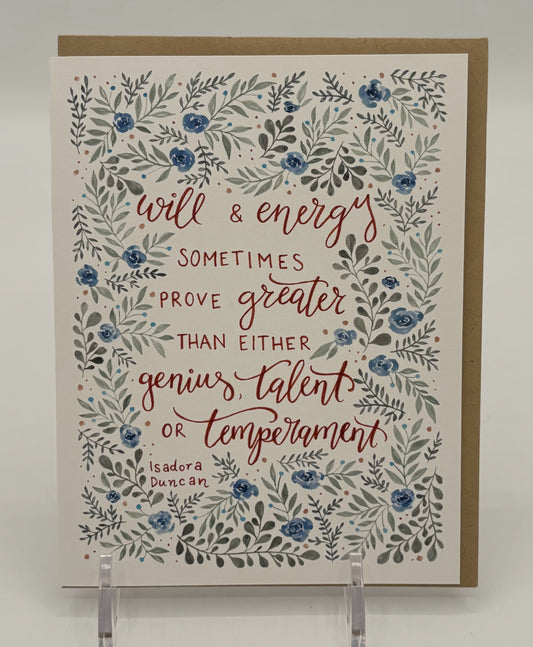 will & energy
SOMETIMES
PROVE greater
THAN EITHER
genius, talent
OR temperament
Isadora
Duncan